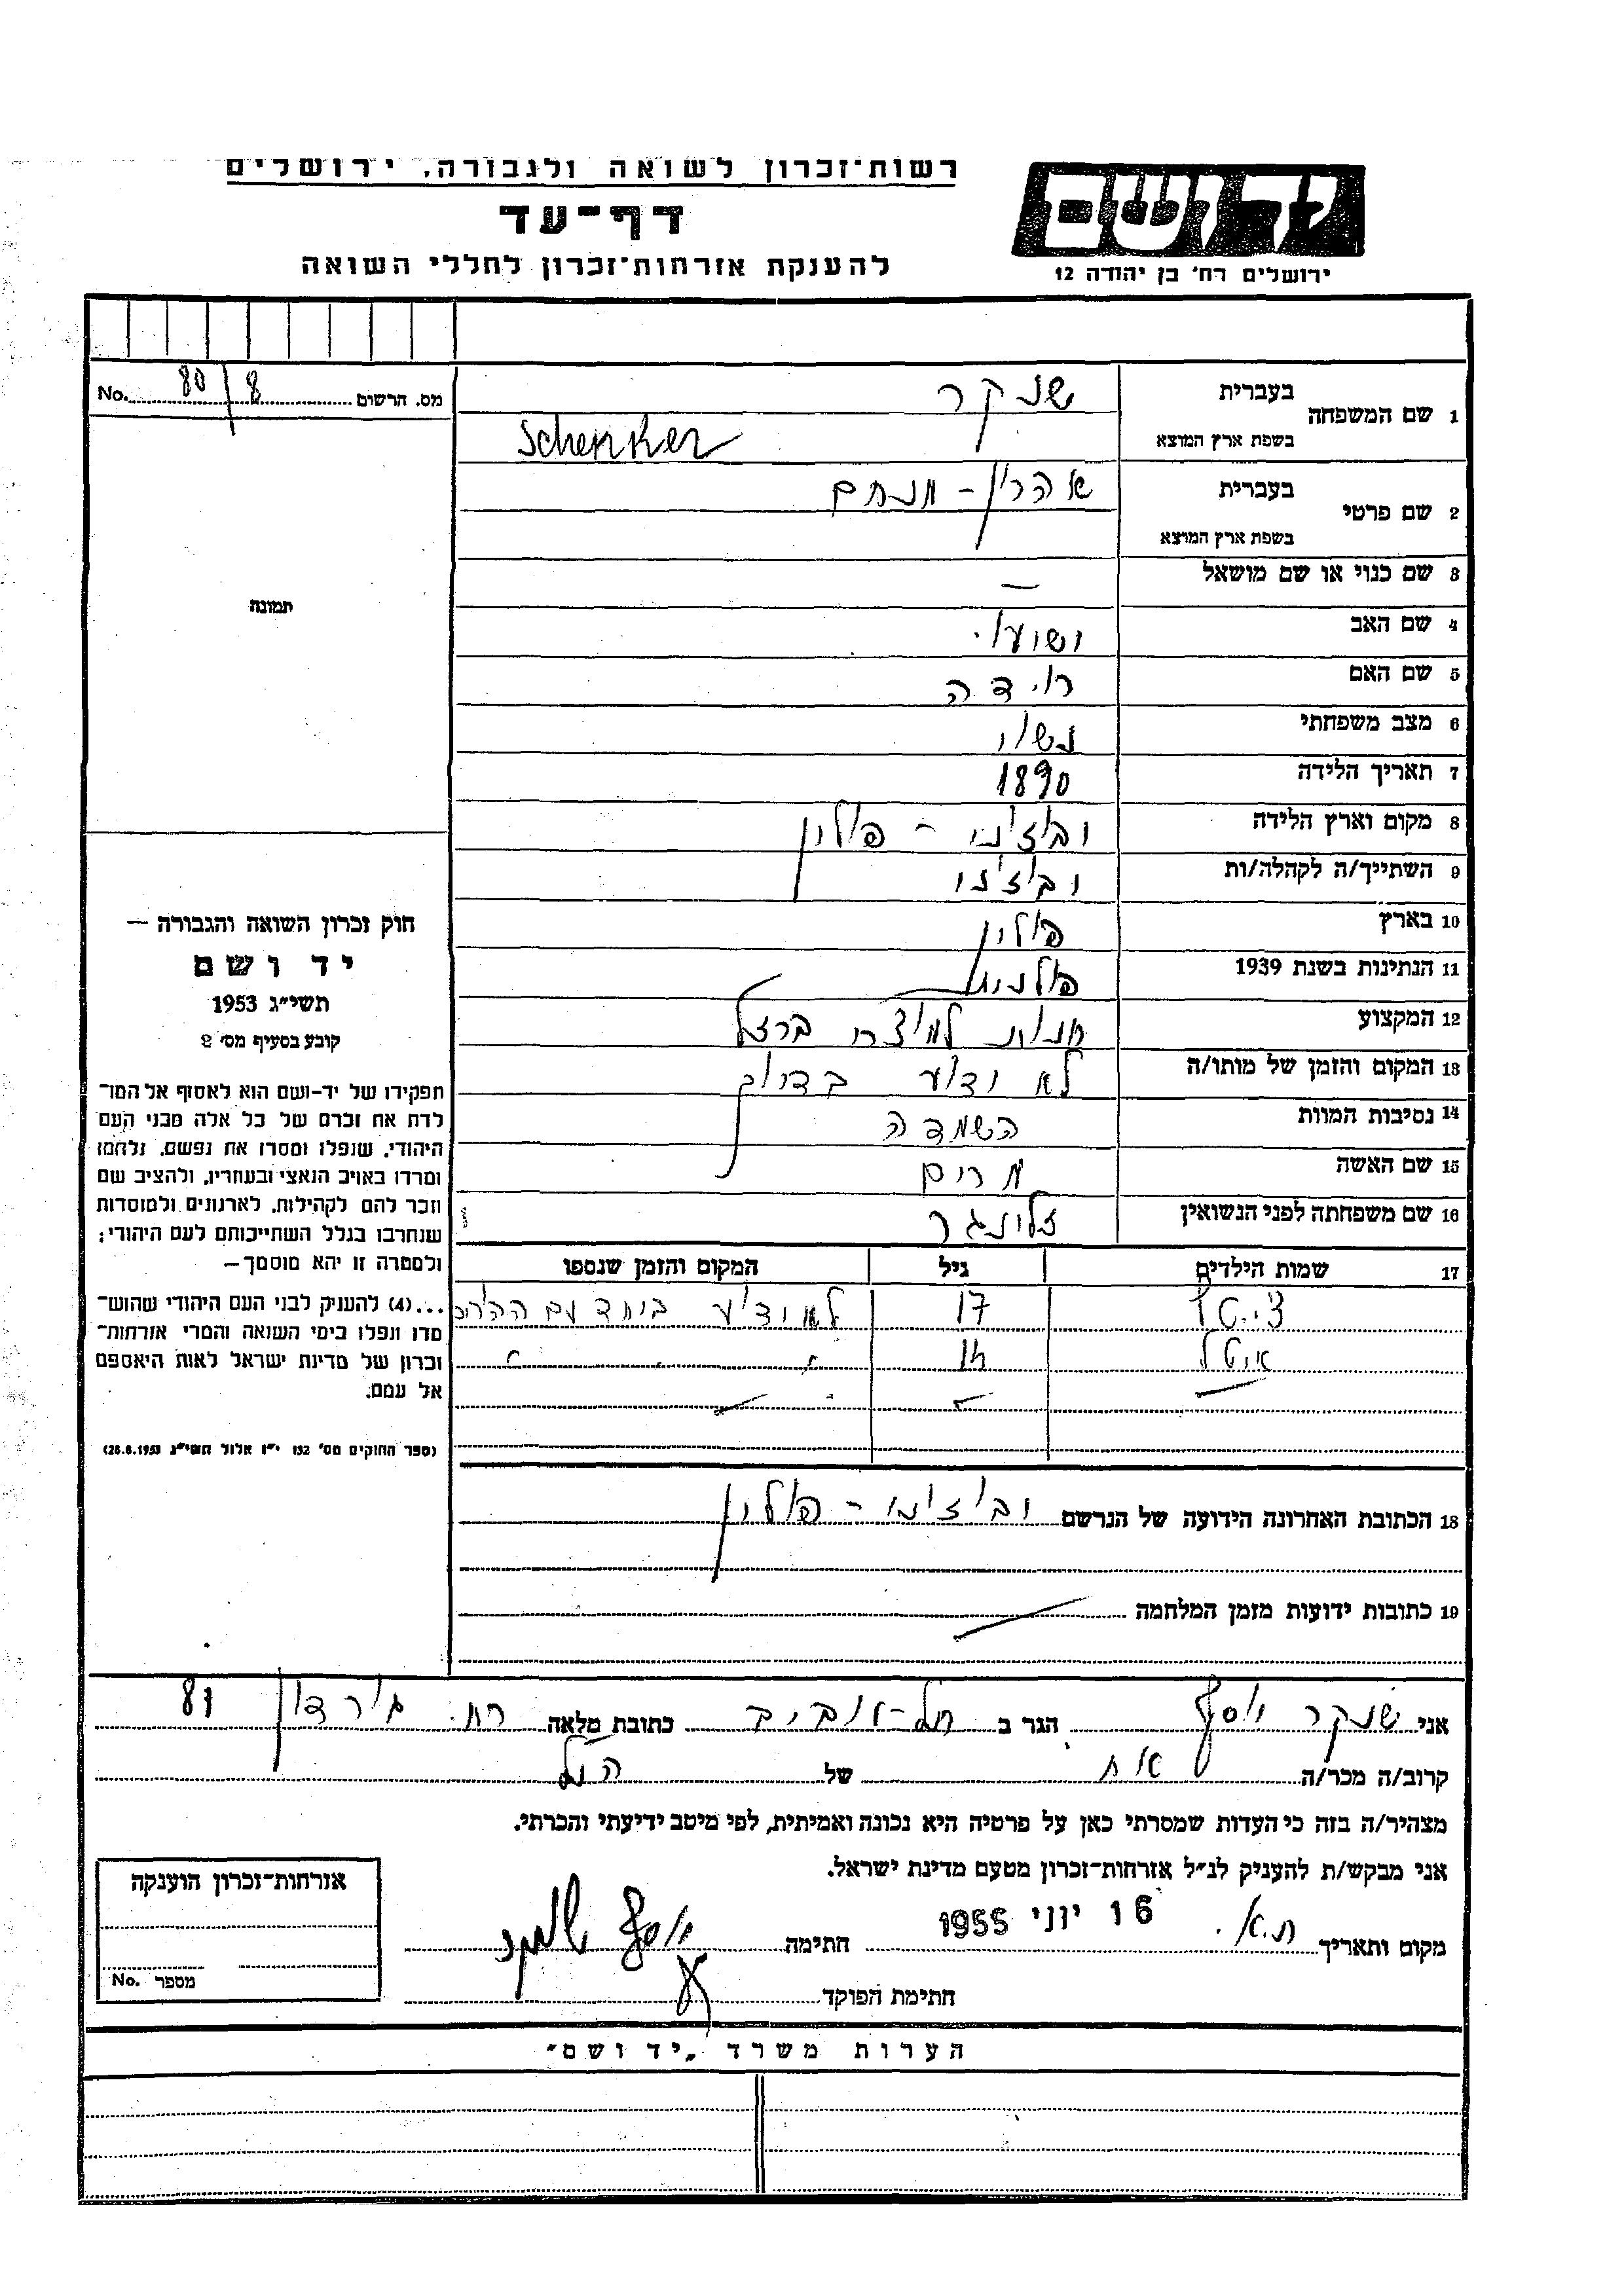 רשות־זכרון לשואה ולגבורה, ירושלים
דף־עד
להענקת אזרחות־זכרון לחללי השואה
יד ושם
ירושלים רח' בן יהודה 12
מס. הרשום 8/80 No.
1 שם המשפחה בעברית שנקר
בשפת ארץ המוצא Schenker
2 שם פרטי בעברית אהרון - מנחם
בשפת ארץ המוצא
3 שם כנוי או שם מושאל —
4 שם האב
5 שם האם
6 מצב משפחתי נשוי
7 תאריך הלידה 1890
8 מקום וארץ הלידה - פולין
9 השתייך/ה לקהלה/ות
10 בארץ פולין
11 הנתינות בשנת 1939 פולנית
12 המקצוע חנות ברזל
13 המקום והזמן של מותו/ה לא ידוע בדיוק
14 נסיבות המוות השמדה
15 שם האשה מרים
16 שם משפחתה לפני הנשואין
17 שמות הילדים גיל המקום והזמן שנספו
17 לא ידוע ביחד עם
איטל 14
18 הכתובת האחרונה הידועה של הנרשם - פולין
19 כתובות ידועות מזמן המלחמה
תמונה
חוק זכרון השואה והגבורה —
יד ושם
תשי"ג 1953
קובע בסעיף מס' 2
תפקידו של יד-ושם הוא לאסוף אל המו־
לדת את זכרם של כל אלה מבני העם
היהודי, שנפלו ומסרו את נפשם, נלחמו
ומרדו באויב הנאצי ובעוזריו, ולהציב שם
וזכר להם לקהילות, לארגונים ולמוסדות
שנחרבו בגלל השתייכותם לעם היהודי;
ולמטרה זו יהא מוסמך—
...(4) להעניק לבני העם היהודי שהוש־
מדו ונפלו בימי השואה והמרי אזרחות־
זכרון של מדינת ישראל לאות היאספם
אל עמם.
(ספר החוקים מס' 132 י"ז אלול תשי"ג 28.8.1953)
אני שנקר יוסף הגר ב תל-אביב כתובת מלאה רח. גורדון 81
קרוב/ה מכר/ה אח של הנ"ל
מצהיר/ה בזה כי העדות שמסרתי כאן על פרטיה היא נכונה ואמיתית, לפי מיטב ידיעתי והכרתי.
אני מבקש/ת להעניק לנ"ל אזרחות-זכרון מטעם מדינת ישראל.
מקום ותאריך ת.א. 16 יוני 1955 חתימה יוסף שנקר
חתימת הפוקד
אזרחות־זכרון הוענקה
מספר No.
הערות משרד „יד ושם"